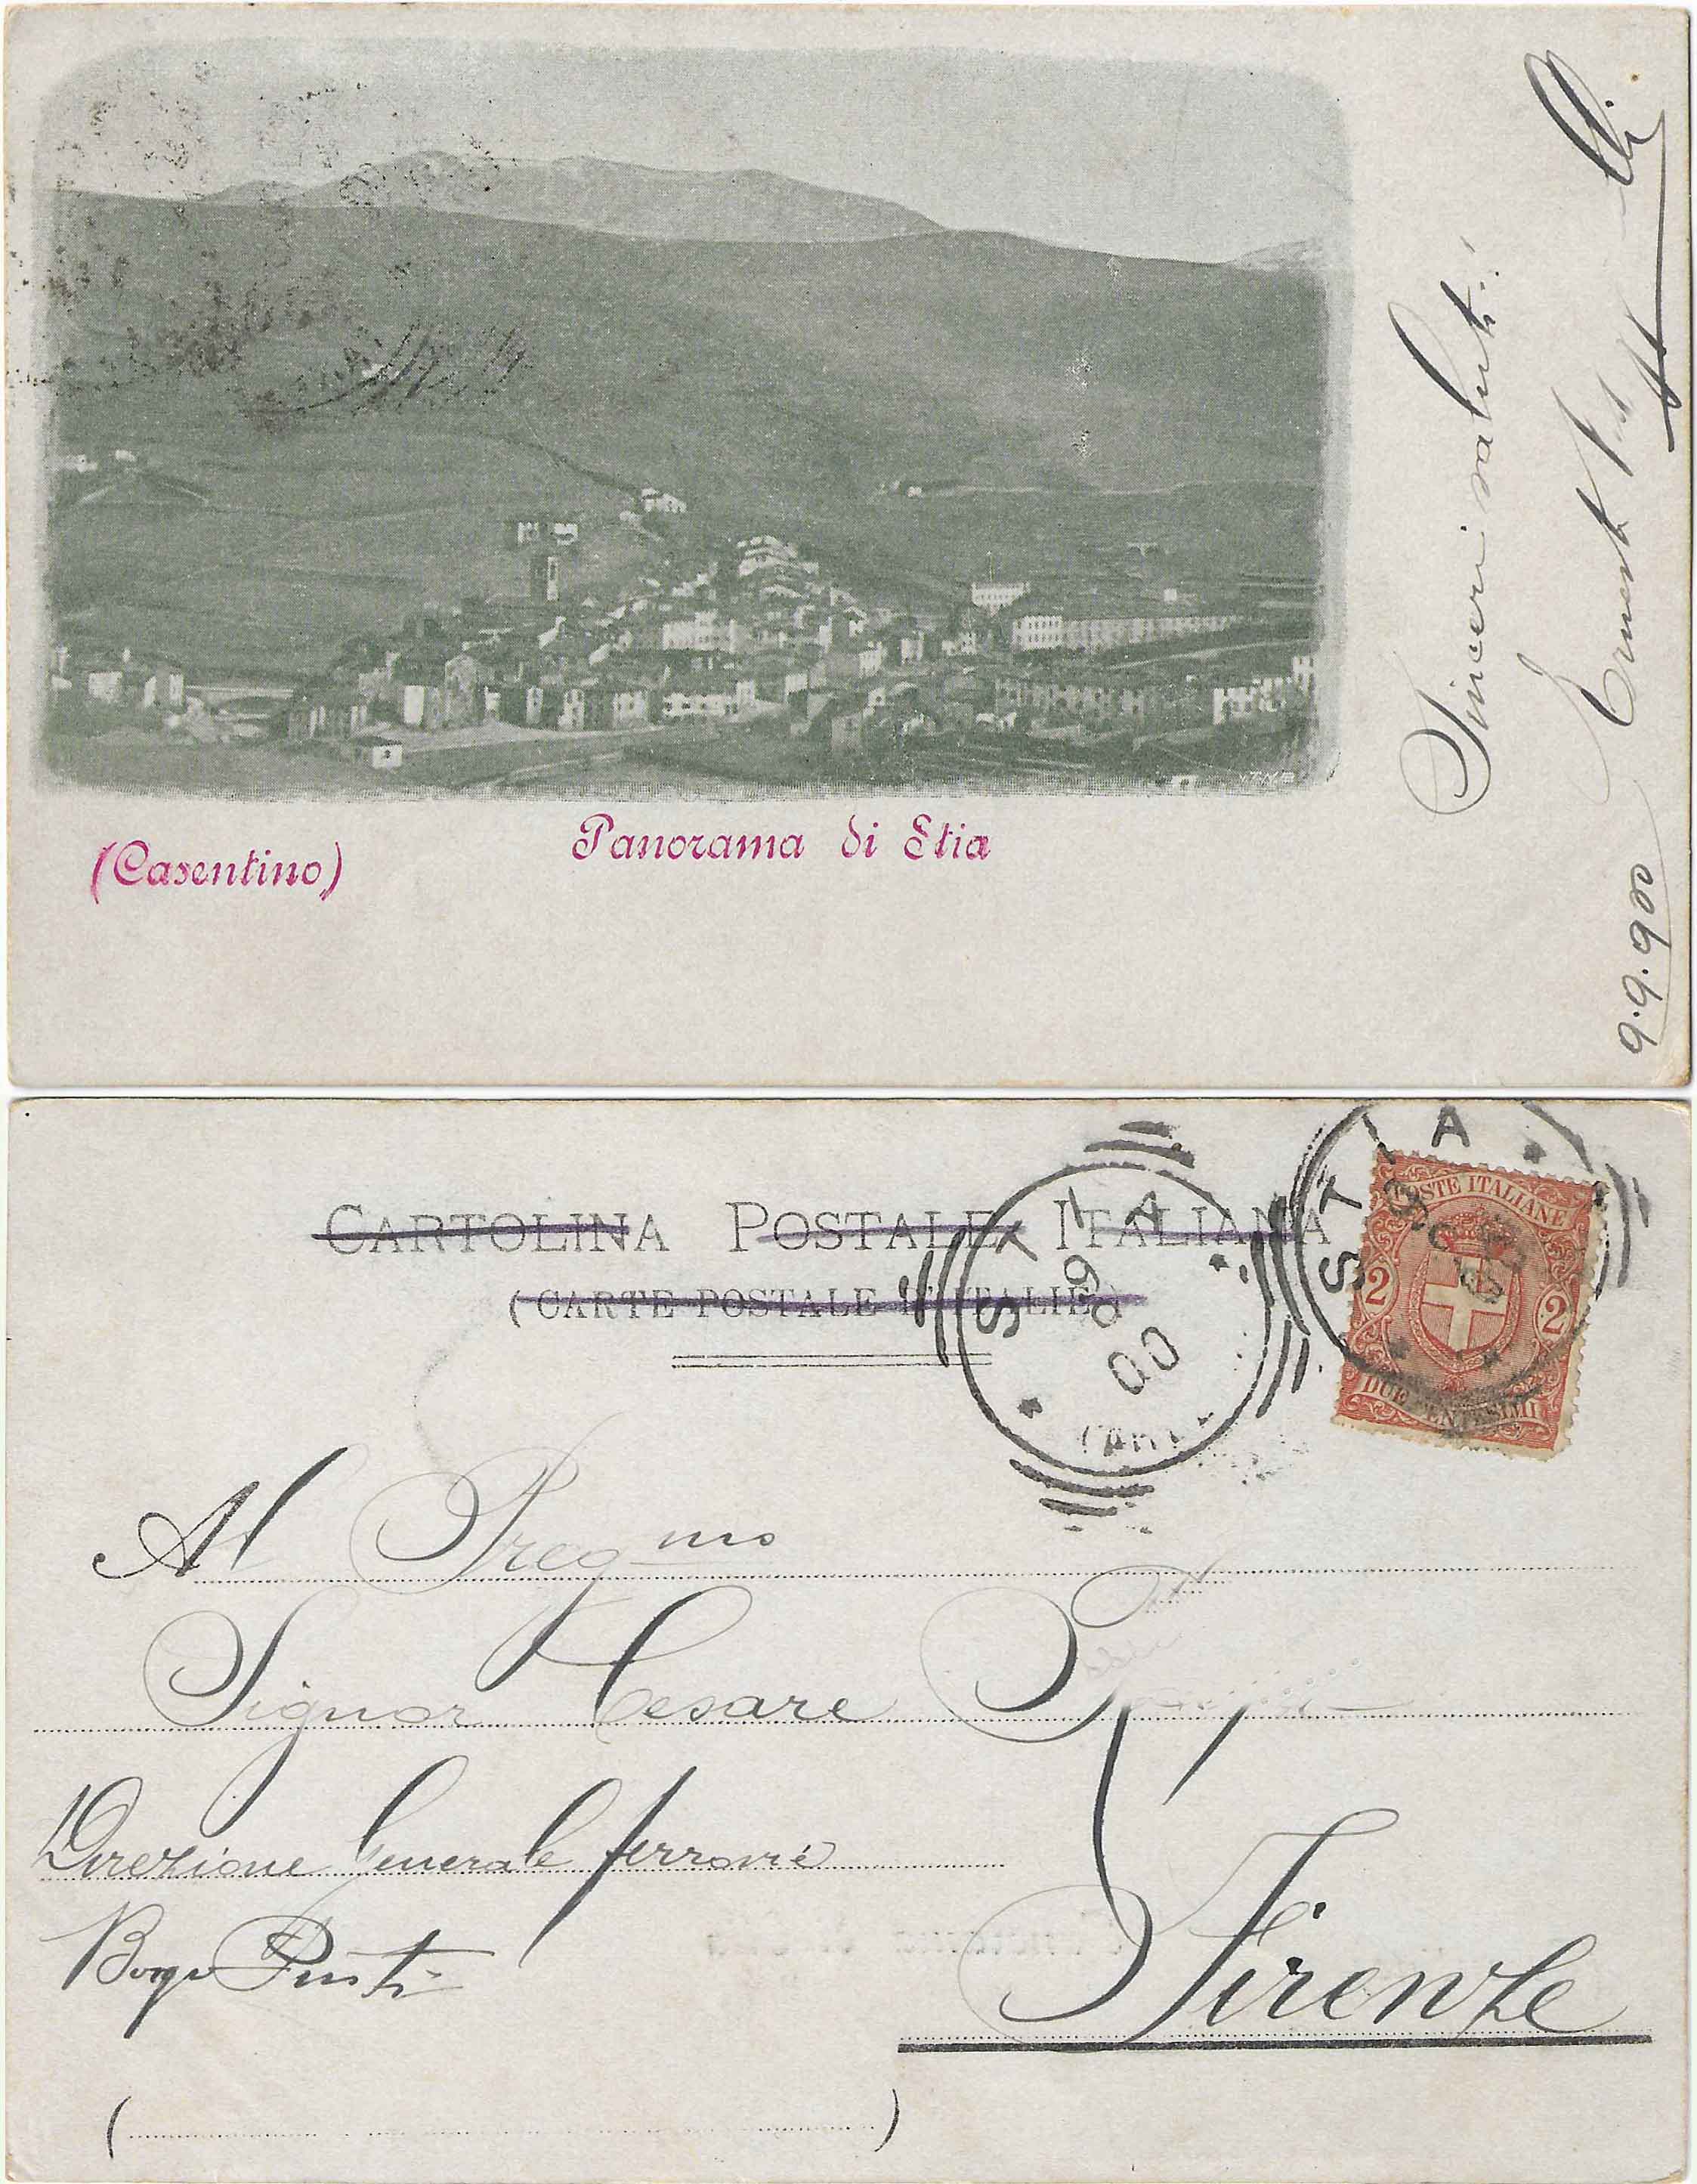 Sinceri saluti!
9.9.900
(Casentino)
Panorama di Stia
V.T.N.B
CARTOLINA POSTALE ITALIANA
(CARTE POSTALE D'ITALIE)
STIA
9 00
STIA
POSTE ITALIANE
2 2
DUE CENTESIMI
Al Pregmo
Signor Cesare
Direzione Generale ferrovie
Borgo Pinti
Firenze
( )